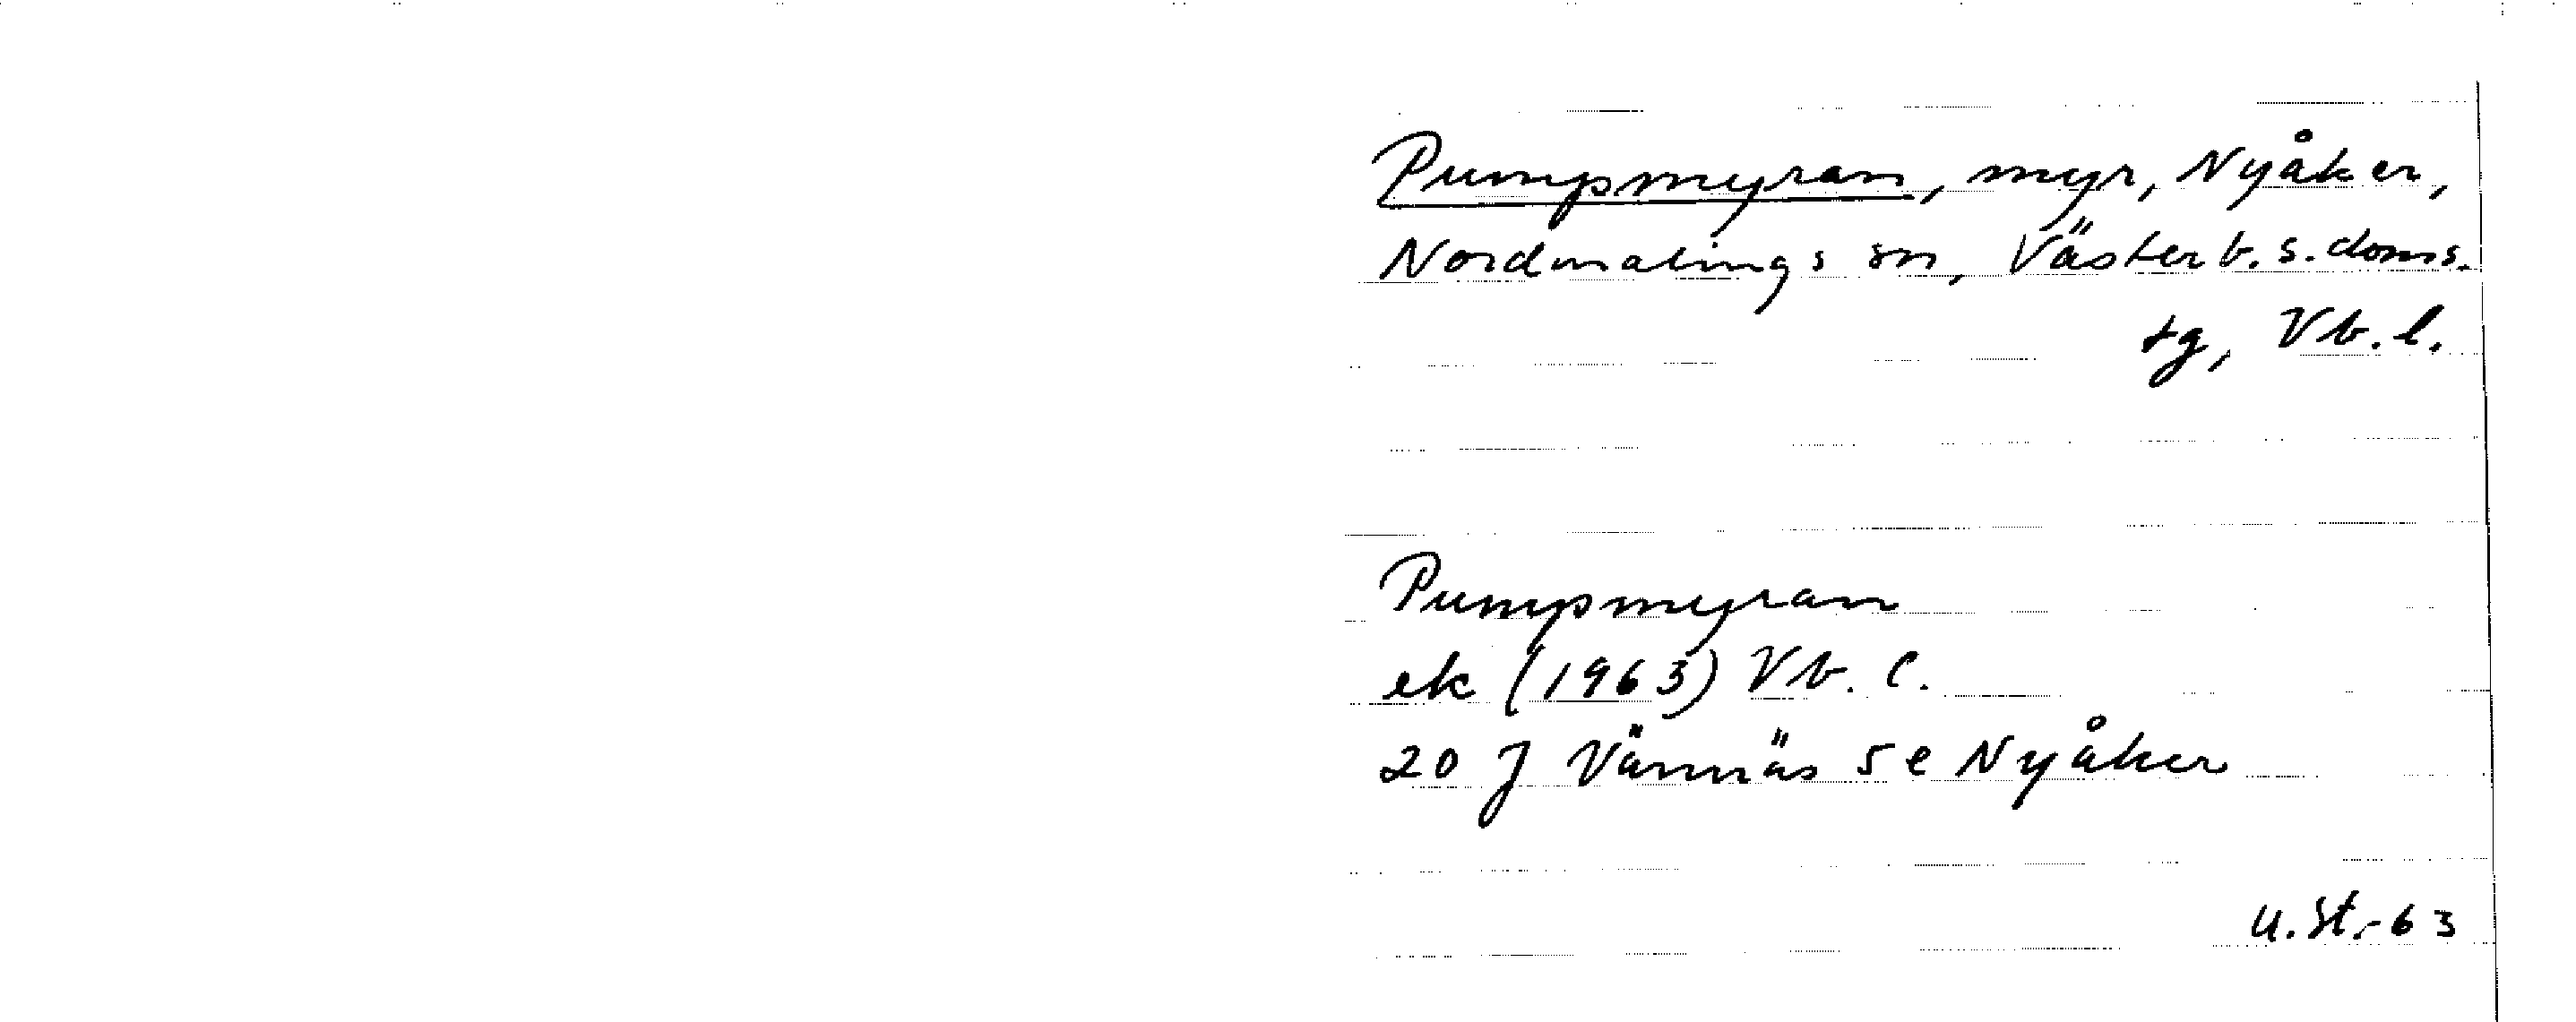 Pumpmyran, myr, Nyåker,
Nordmalings sn, Västerb. s. doms.
tg, Vb. l.
Pumpmyran
ek (1963) Vb. l.
20 J Vännäs 5 e Nyåker
U.St.-63